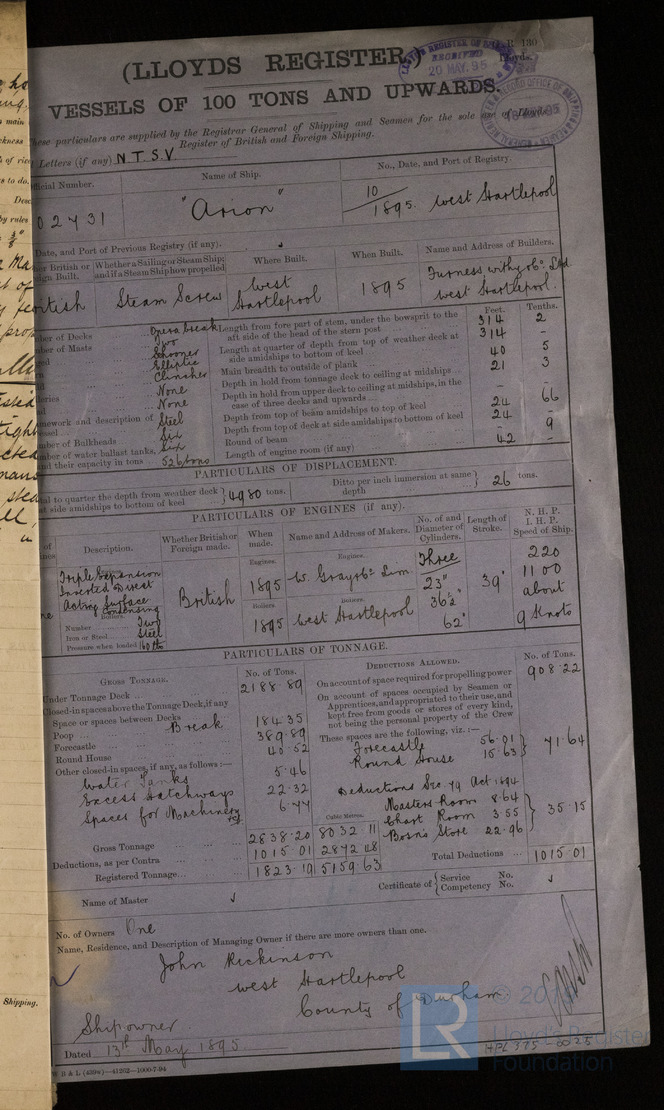 (LLOYDS REGISTER.)
VESSELS OF 100 TONS AND UPWARDS.
LLOYD'S REGISTER OF
RECEIVED
20 MAY. 95
These particulars are supplied by the Registrar General of Shipping and Seamen for the sole use of Lloyds
Register of British and Foreign Shipping.
Letters (if any) N.T.S.V.
Number. Name of Ship. No., Date, and Port of Registry.
02731 "Arion" 10/1895. West Hartlepool
Date, and Port of Previous Registry (if any).
British or Built. Whether a Sailing or Steam Ship; and if a Steam Ship how propelled Where Built. When Built. Name and Address of Builders.
British Steam Screw West Hartlepool 1895 Furness Withy & Co Ltd West Hartlepool.
Feet. Tenths.
of Decks One & a break Length from fore part of stem, under the bowsprit to the aft side of the head of the stern post 314 2
of Masts Two Length at quarter of depth from top of weather deck at side amidships to bottom of keel 314 -
Schooner Main breadth to outside of plank 40 5
Elliptic Depth in hold from tonnage deck to ceiling at midships 21 3
Clincher Depth in hold from upper deck to ceiling at midships, in the case of three decks and upwards - -
None Depth from top of beam amidships to top of keel 24 66
None Depth from top of deck at side amidships to bottom of keel 24 -
and description of Steel Round of beam 9
of Bulkheads Six Length of engine room (if any) 42 -
of water ballast tanks, Six
and their capacity in tons 526 tons
PARTICULARS OF DISPLACEMENT.
to quarter the depth from weather deck at side amidships to bottom of keel 4980 tons. Ditto per inch immersion at same depth 26 tons.
PARTICULARS OF ENGINES (if any).
Description. Whether British or Foreign made. When made. Name and Address of Makers. No. of and Diameter of Cylinders. Length of Stroke. N. H. P. I. H. P. Speed of Ship.
Engines. Engines.
Triple Expansion Inverted Direct Acting Surface Condensing British 1895 W. Gray & Co Lim Three 23" 36½" 62" 39" 220 1100 about 9 Knots
Boilers. Boilers Boilers.
Number Two 1895 West Hartlepool
Iron or Steel Steel
Pressure when loaded 160 lbs
PARTICULARS OF TONNAGE.
GROSS TONNAGE. No. of Tons. DEDUCTIONS ALLOWED. No. of Tons.
Under Tonnage Deck 2188.89 On account of space required for propelling power 908.22
Closed-in spaces above the Tonnage Deck, if any On account of spaces occupied by Seamen or
Space or spaces between Decks Apprentices, and appropriated to their use, and
Poop Break 184.35 kept free from goods or stores of every kind,
Forecastle 389.89 not being the personal property of the Crew
Round House 40.52 These spaces are the following, viz.:—
Other closed-in spaces, if any, as follows:— Forecastle 56.01
Water Tanks 5.46 Round House 15.63 } 71.64
Excess Hatchways 22.32 Deductions Sec 79 Act 1894
Spaces for Machinery &c 6.77 Masters Room 8.64
Cubic Metres. Chart Room 3.55 } 35.15
Gross Tonnage 2838.20 8032.11 Bosn's Store 22.96
Deductions, as per Contra 1015.01 2872.48 Total Deductions 1015.01
Registered Tonnage 1823.19 5159.63
Name of Master Certificate of { Service No. Competency No.
No. of Owners One
Name, Residence, and Description of Managing Owner if there are more owners than one.
John Rickinson
West Hartlepool
County of Durham
Shipowner
Dated 13th May 1895
B & L (4394)—41252—1000-7-94
HPL375-0025
LR
Lloyd's Register
Foundation
Shipping.